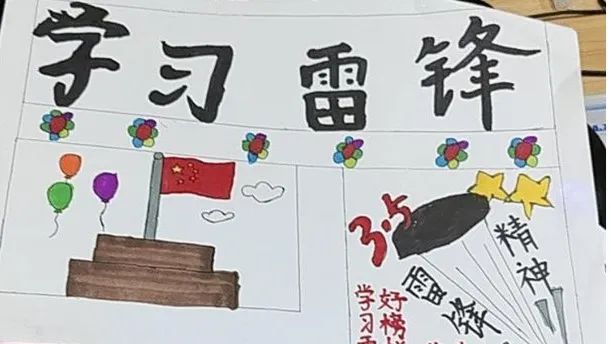 学习雷锋
3.5
雷锋
精神
学习
好榜